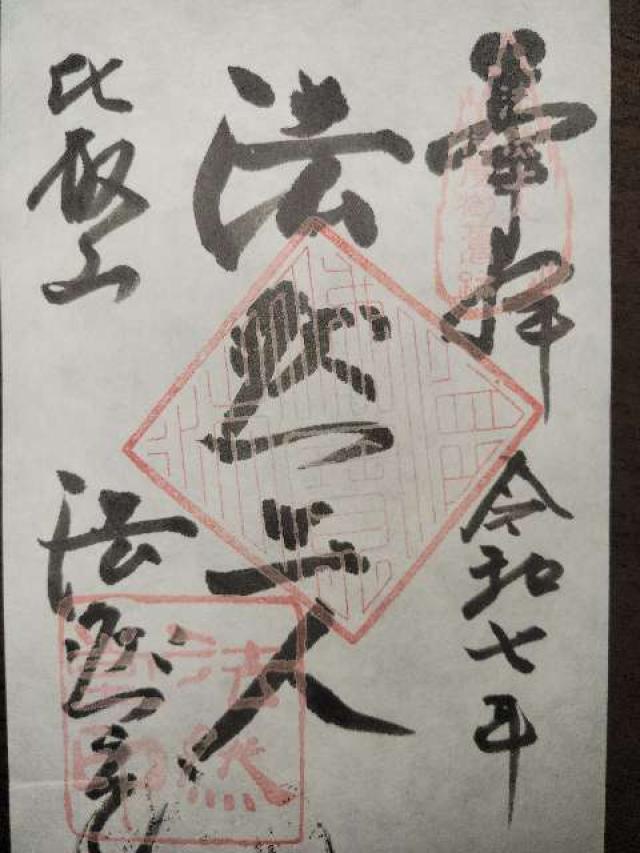 奉拝 令和七年
法然上人
比叡山 法然堂
法然
堂印